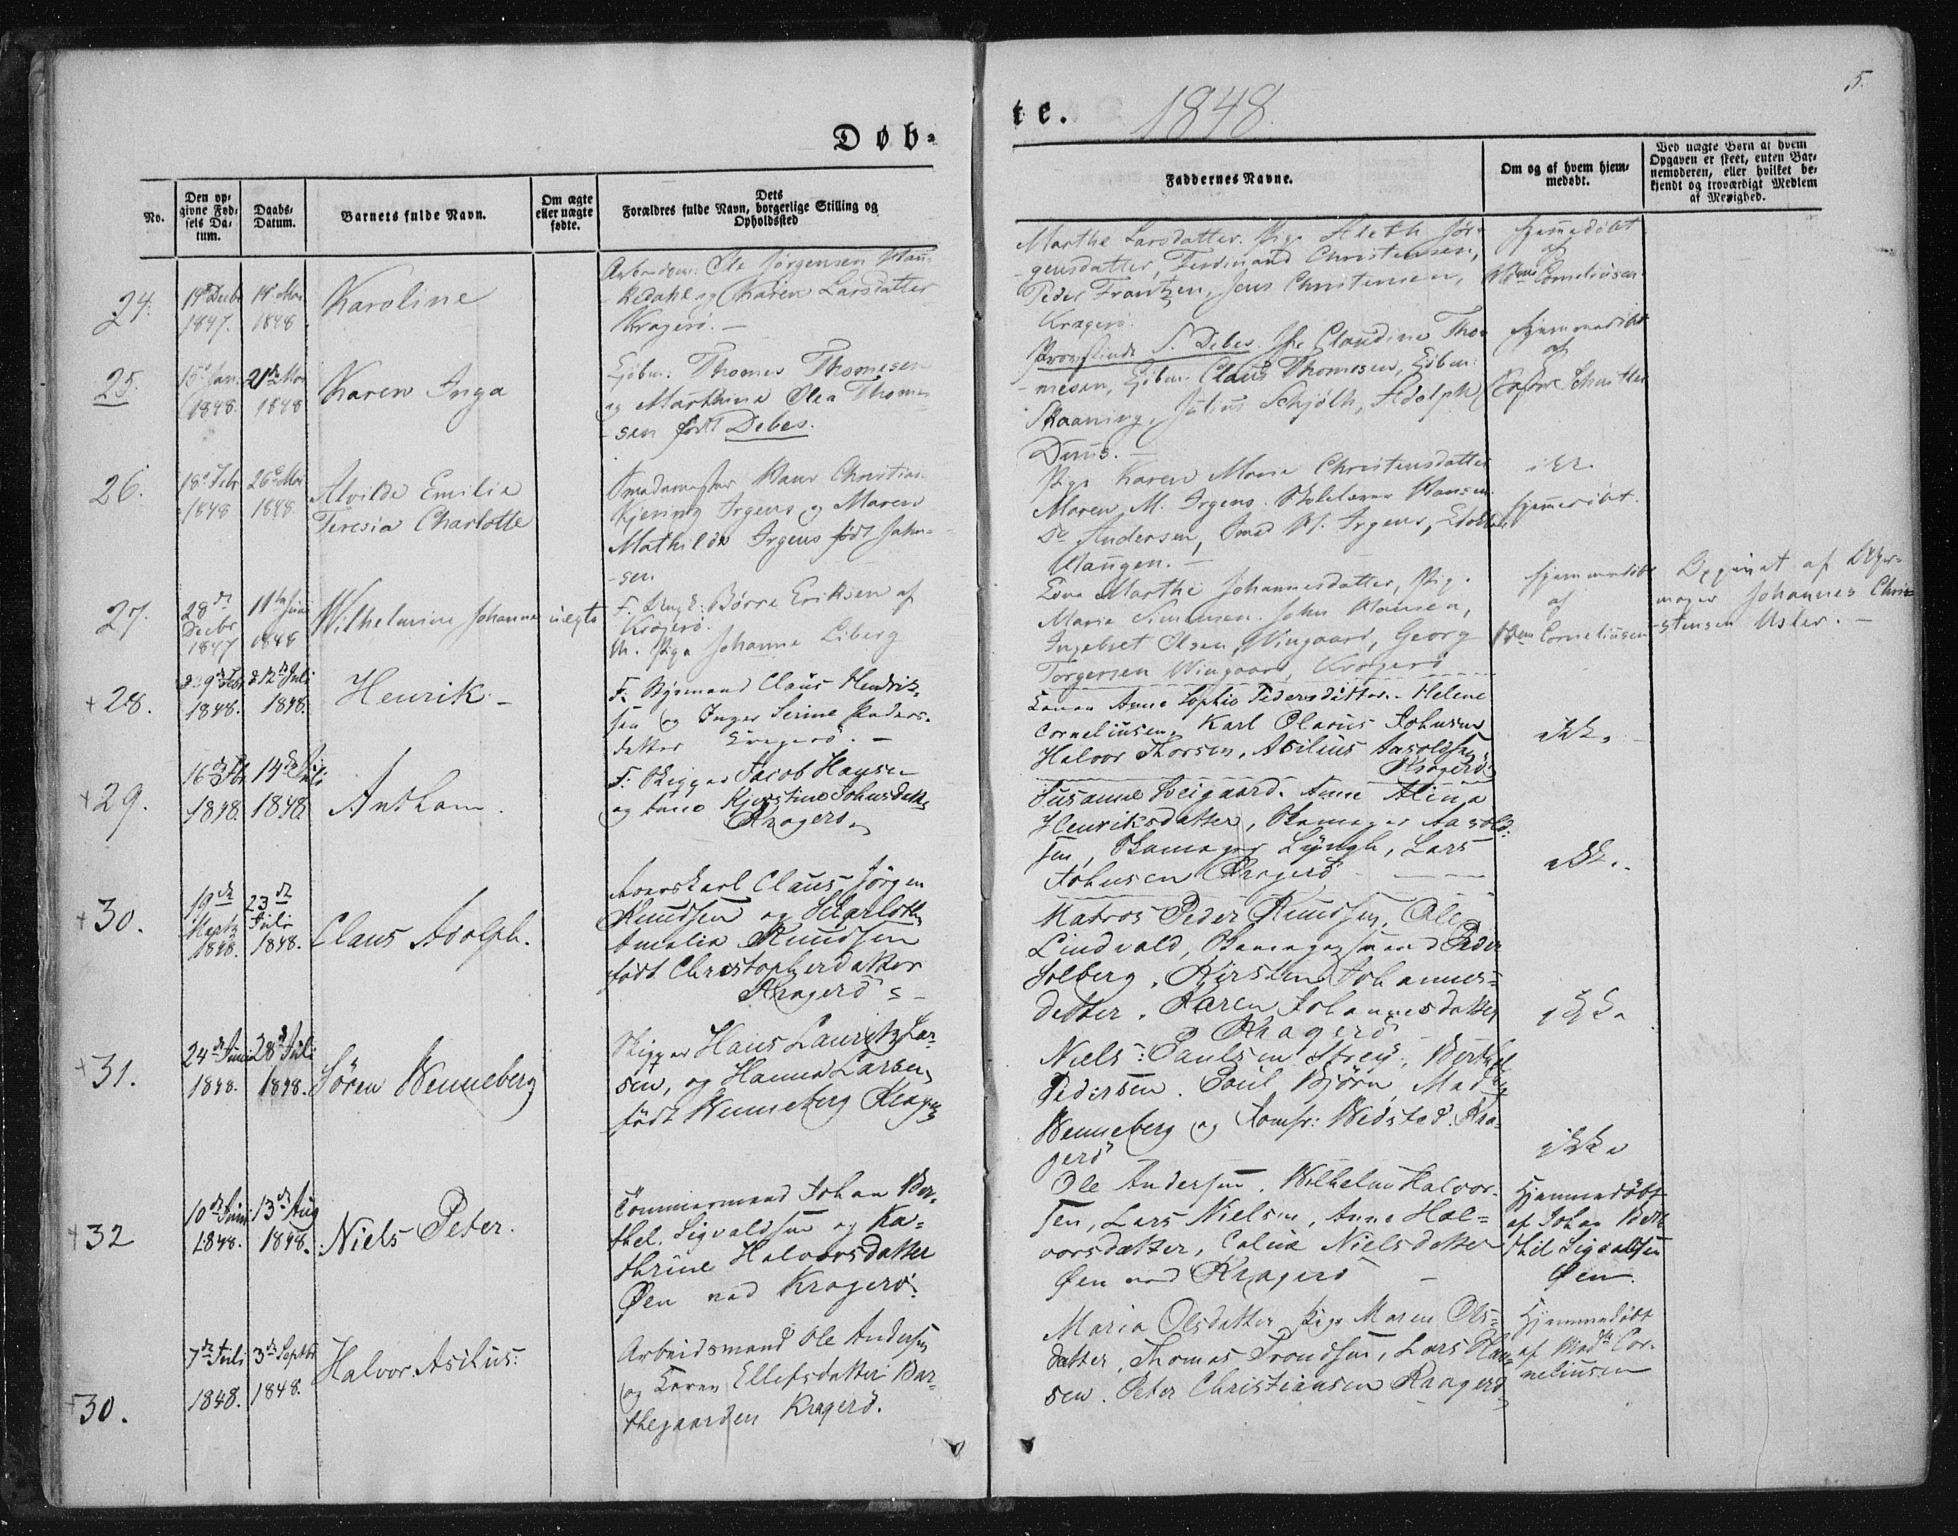 5.
Døb-
te. 1848
No.
Den op-
givne Fød-
sels Da-
tum.
Daabs-
Datum.
Barnets fulde Navn.
Om ægte
eller uægte
fødte.
Dets
Forældres fulde Navn, borgerlige Stilling og
Opholdssted
Faddernes Navne.
Om og af hvem hjem-
medøbt.
Ved uægte Børn af hvem
Opgaven er skeet, enten Bar-
nemoderen, eller hvilket be-
kjendt og troværdigt Medlem
af Menighed.
24.
1847.
1848
Karoline
Ole Jørgensen
og Karen Larsdatter
Kragerø. -
Marthe Larsdatter. Pige Aleth Jør-
gensdatter, Ferdinand Christensen,
Peder Frantzen, Jens Christensen,
Kragerø.
hjemmedøbt
af
Corneliusen
25.
15 Jan.
1848.
21de Mai
1848
Karen Inga
Thomes Thomesen
og Marthine Olea Thome-
sen født Debes.
Debes. Claudine Tho-
mesen, Claus Thomesen,
Skaaning, Julius Schjølth, Adolph
hjemmedøbt
af
26.
18 Febr
1848
26 Mai
1848.
Alvilde Emilie
Teresia Charlotte
Hans Christian
Irgens og Maren
Mathilde Irgens født John-
sen
Pige Karen Marie Christensdatter
Maren M. Irgens. Skolelærer Hansen
Andersen, Smed H. Irgens,
Haugen. -
ikke
hjemmedøbt.
27.
28de
Decbr
1847
11te Juni
1848
Wilhelmine Johanne
uegte
F. Børre Eriksen af
Kragerø.
M. Pige Johanne Liberg
Kone Marthe Johannesdatter, Pige
Marie Simensen. John Hansen,
Ingebret Olsen Wingaard, Georg
Torgersen Wingaard, Kragerø
hjemmedøbt
af
Corneliusen
Opgivet af
Johannes Chri-
stensen Usler. -
+28.
1848.
12te Juli
1848.
Henrik -
F. Claus Hendrik-
sen og Inger Serine Peders-
datter Kragerø. -
Konen Anne Sophie Pedersdatter. Helene
Corneliusen, Karl Olaius Johnsen
Halvor Thorsen, Asilius Aasoldsen
Kragerø
ikke.
+29.
1848.
14de Juli
1848.
Anthom.
F. Skipper Jacob Hansen
og kone Kjerstine Johnsdatter
Kragerø.
Susanne Heigaard. Anne Alina
Henriksdatter, Skomager Aasold-
sen, Skomager Lyngh, Lars
Johnsen Kragerø
ikke.
+30.
19de
Martz
1848.
23de
Juli
1848.
Claus Adolph.
Claus Jörgen
Knudsen og Scharlotte
Amalia Knudsen
født Christopherdatter
Kragerö
Matros Peder Knudsen, Ole
Lindvald, Peder
Solberg, Kirsten Johannes-
datter, Karen Johannesdatter
Kragerø
ikke
+31.
24de Juni
1848.
28de Juli
1848.
Søren Wenneberg
Skipper Hans Lauritz Lar-
sen, og Hanna Larsen,
født Wenneberg Kragerø
Niels Paulsen Strey, Berthel
Pedersen. Poul Bjørn, Mad
Wenneberg og Jomfr: Wedsted. Kra-
gerø
ikke
+32
10de Juni
1848.
13de Aug
1848.
Niels Peter.
Tömmermand Johan Ber-
thel. Sigvaldsen og Ka-
thrine Halvorsdatter
Øen ved Kragerø.
Ole Andersen. Wilhelm Halvor-
sen, Lars Nielsen, Anne Hal-
vorsdatter, Coline Nielsdatter
Øen ved Kragerø -
Hjemmedøbt
af Johan Bert
thel Sigvaldsen
Øen.
+30.
7de Juli
1848.
3de Septbr
1848.
Halvor Asilus:
Arbeidsmand Ole Andersen
og Karen Ellefsdatter Bar-
thegaarden Kragerø.
Maria Olsdatter Pige Maren Ols-
datter, Thomas Trondsen, Lars Han-
sen. Peter Christiansen Kragerø
Hjemmedøbt
af Mad Cor-
neliusen